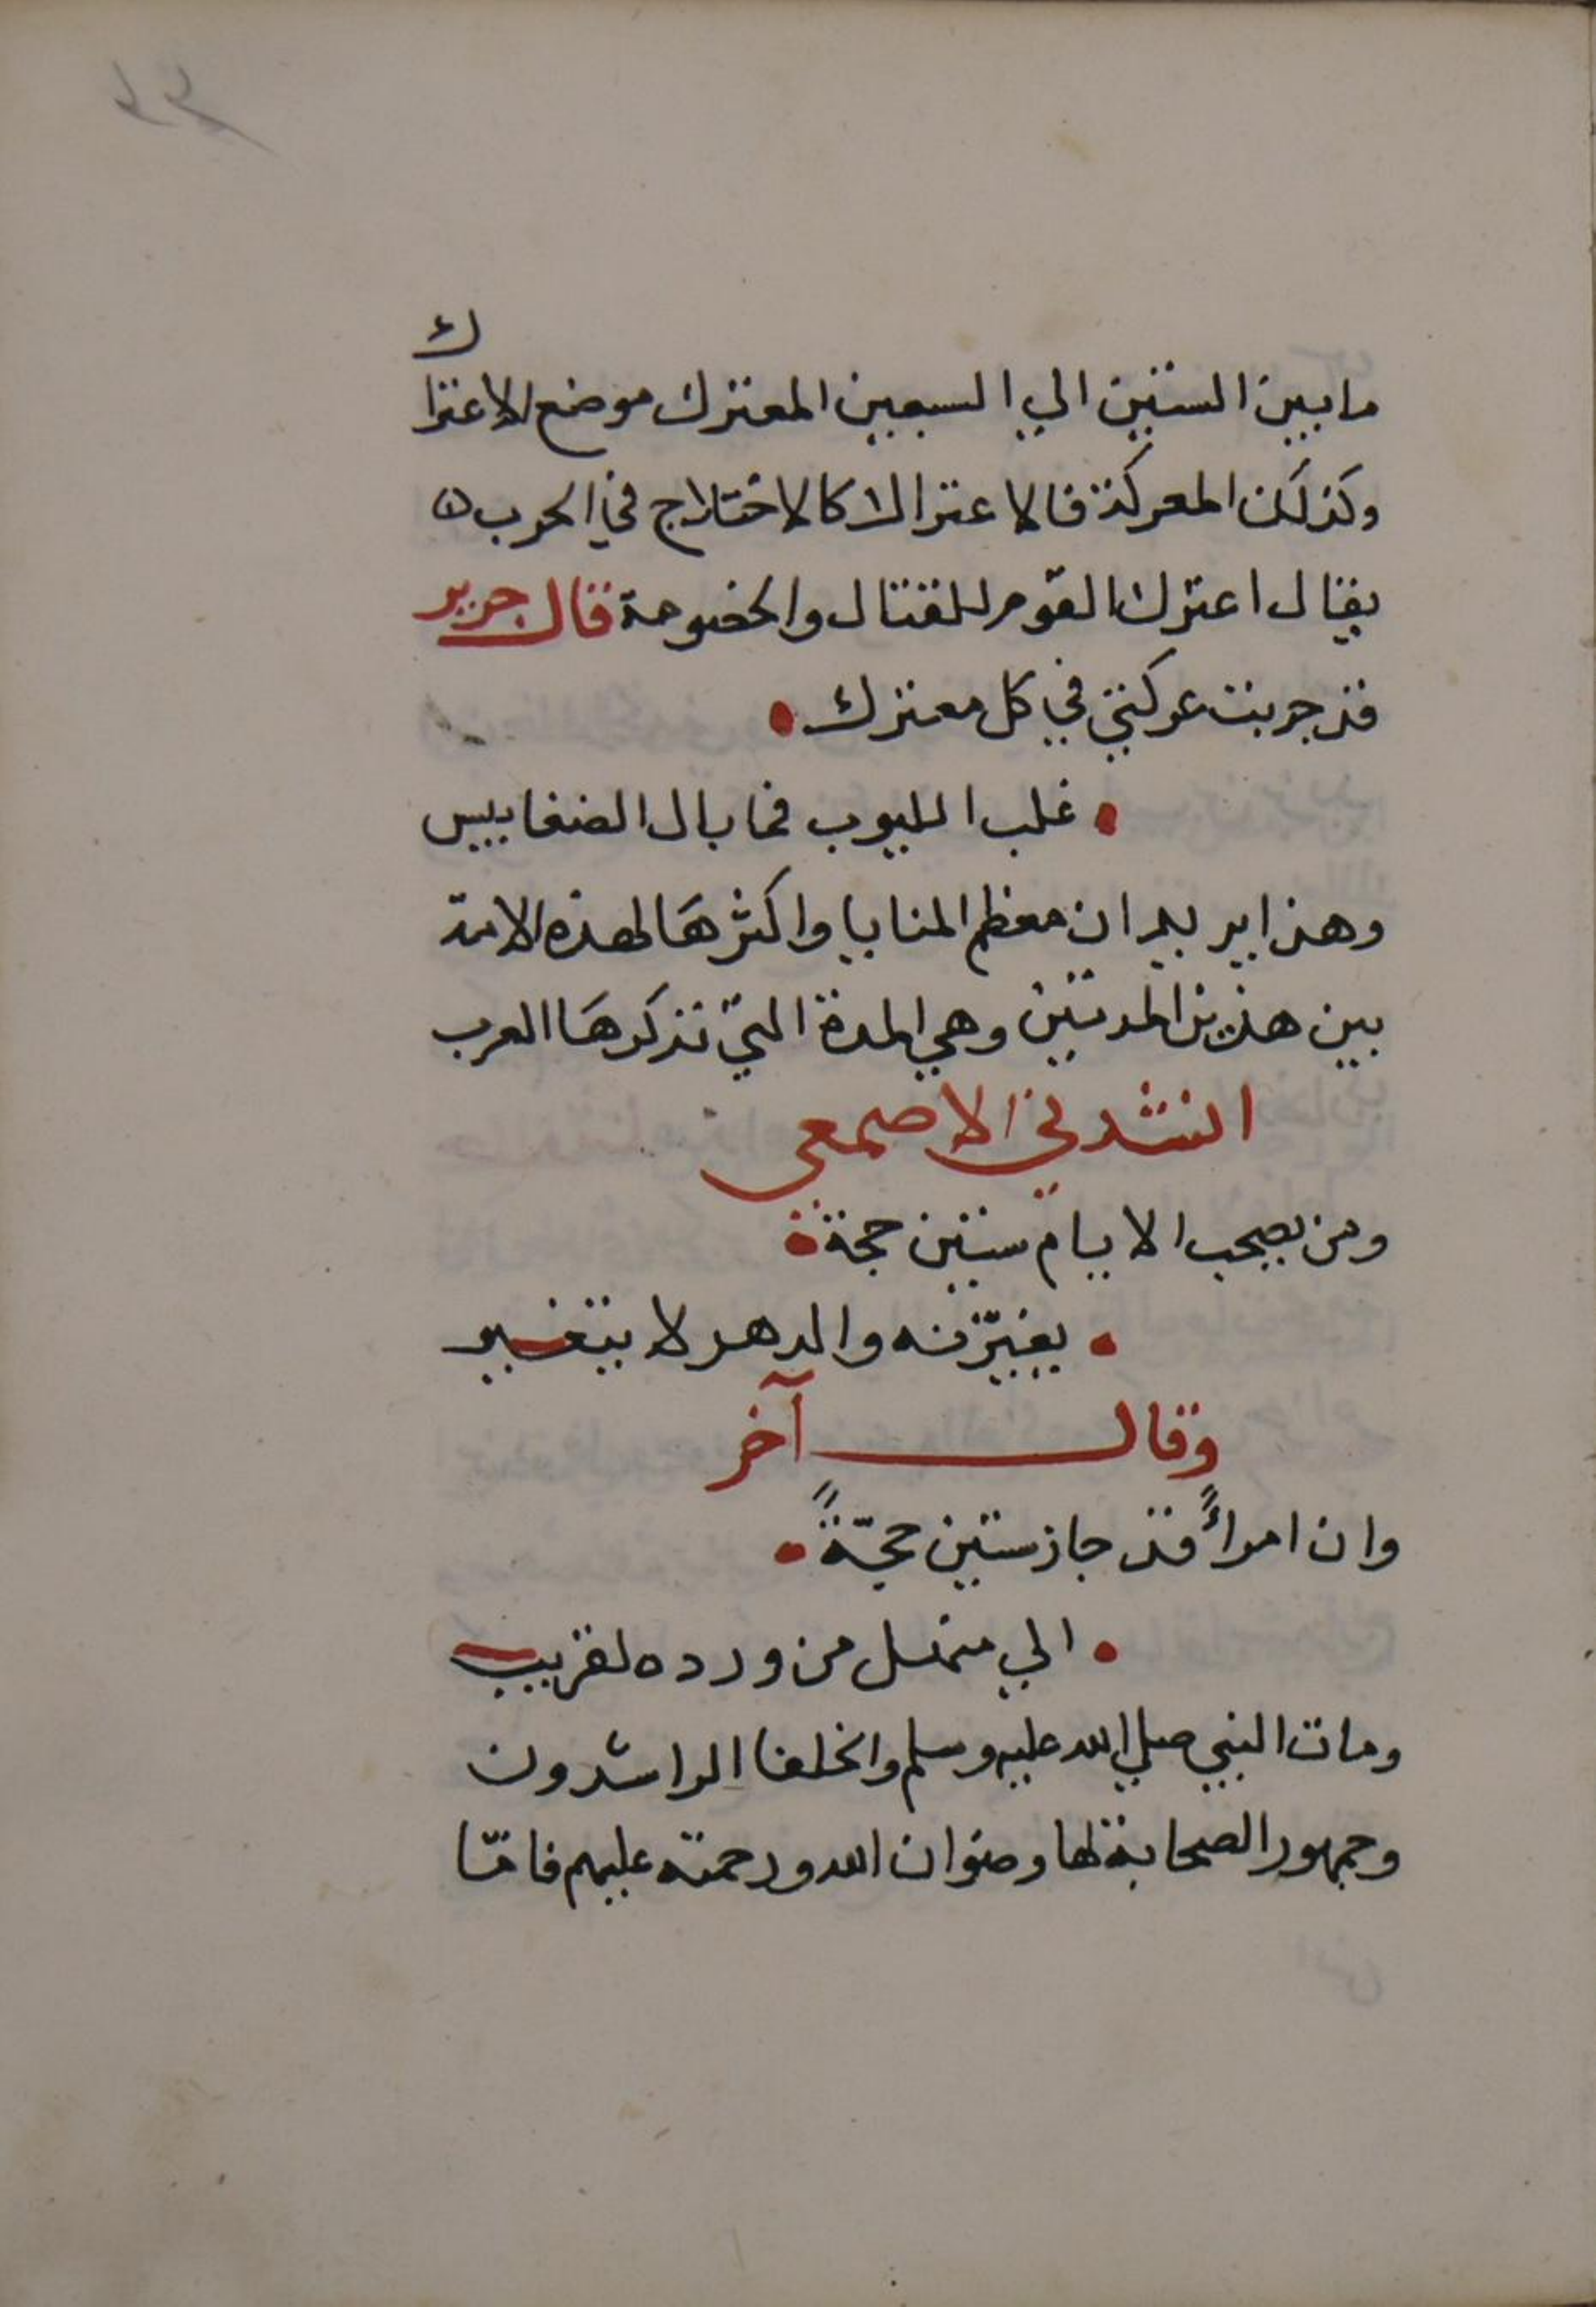 ما بين الستين الي السبعين المعترك موضع الاعتراك
وكذلك المعركة فالاعتراك كالاختلاج في الحرب
يقال اعترك القوم للقتال والخصومة قال جرير
قد جربت عركتي في كل معترك
غلب الليوب فما بال الضغابيس
وهذا يريد ان معظم المنايا واكثرها لهذه الامة
بين هذين المدتين وهي المدة التي تذكرها العرب
انشدني الاصمعي
ومن يصحب الايام ستين حجة
يغيّرنه والدهر لا يتغير
وقال آخر
وان امرأً قد جاز ستين حجّةً
الي منهل من ورده لقريب
ومات النبي صلي الله عليه وسلم والخلفا الراشدون
وجمهور الصحابة لها رضوان الله ورحمته عليهم فامّا